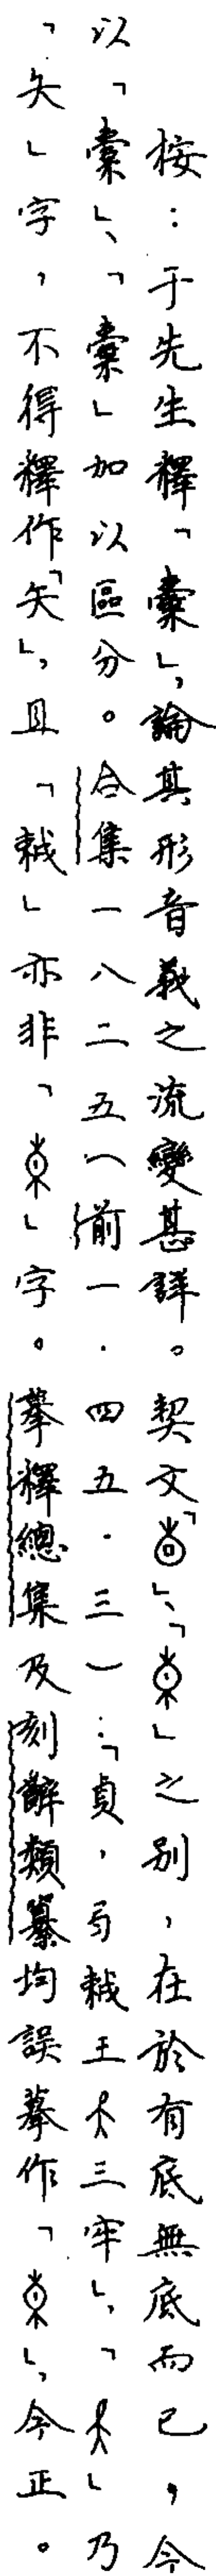 按：于先生釋「橐」，論其形音義之流變甚詳。契文「」、「」之別，在於有底無底而已，今
以「橐」、「橐」加以區分。合集一八二五（前一．四五．三）：「貞，㔾𢧀王矢三牢」，「矢」乃
「矢」字，不得釋作「矢」，且「𢧀」亦非「」字。摹釋總集及刻辭類纂均誤摹作「」，今正。